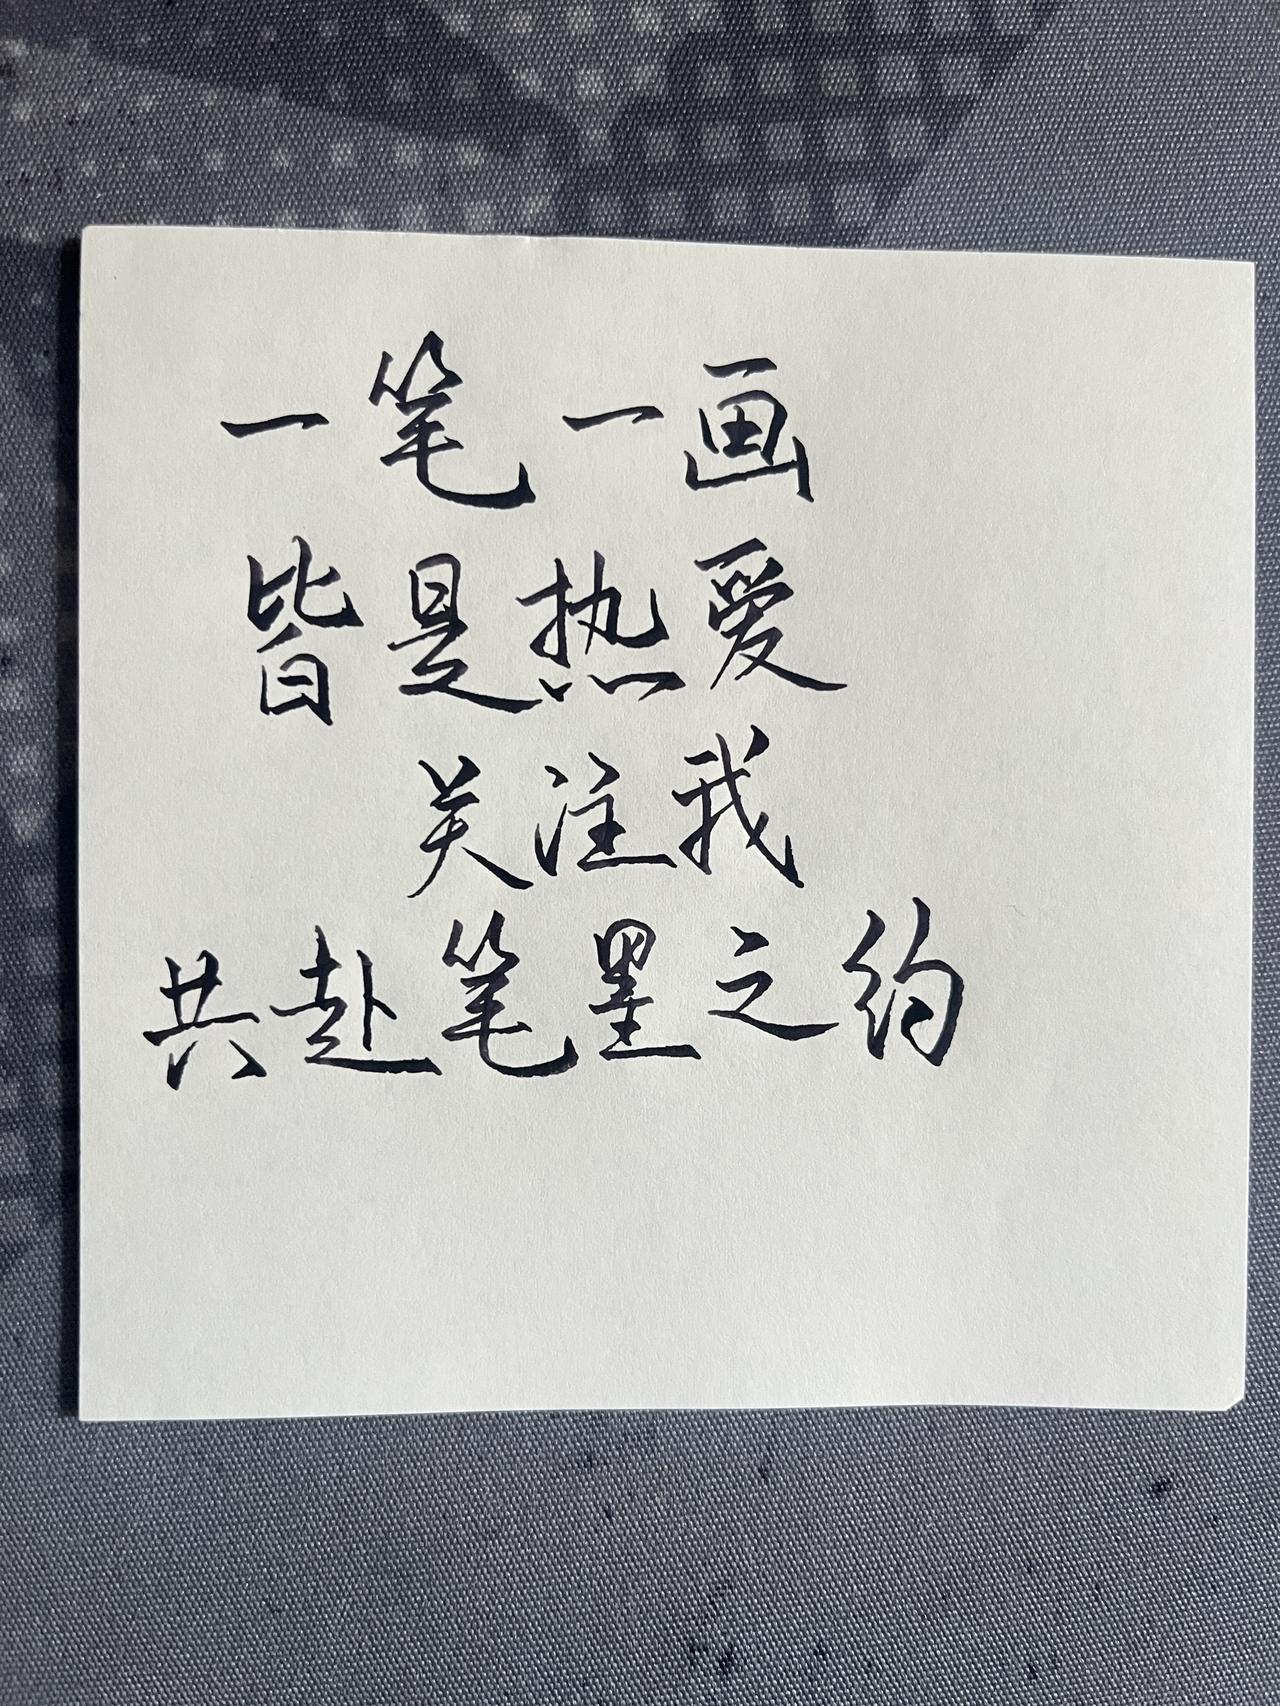 一笔一画
皆是热爱
关注我
共赴笔墨之约